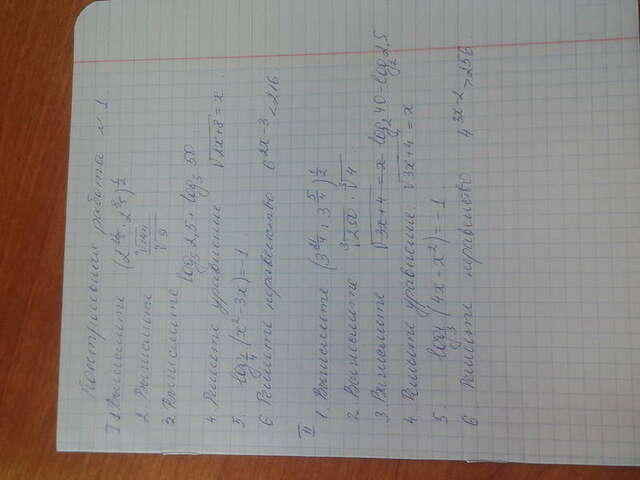 Контрольная работа №1.
I 1. Вычислите
2. Вычислите
3. Вычислите log₅ 2,5 + log₅ 50
4. Решите уравнение √2x+8 = x
5. (x² - 3x) = -1
6 Решите неравенство 6^(2x-3) < 216
II
1. Вычислите
2 Вычислите ∛250 · ∛4
3 Вычислите √3x+4 = x log₂ 40 - log₂ 2,5
4 Решите уравнение √3x+4 = x
5. (4x - x²) = -1
6. Решите неравенство 4^(3x-2) > 256